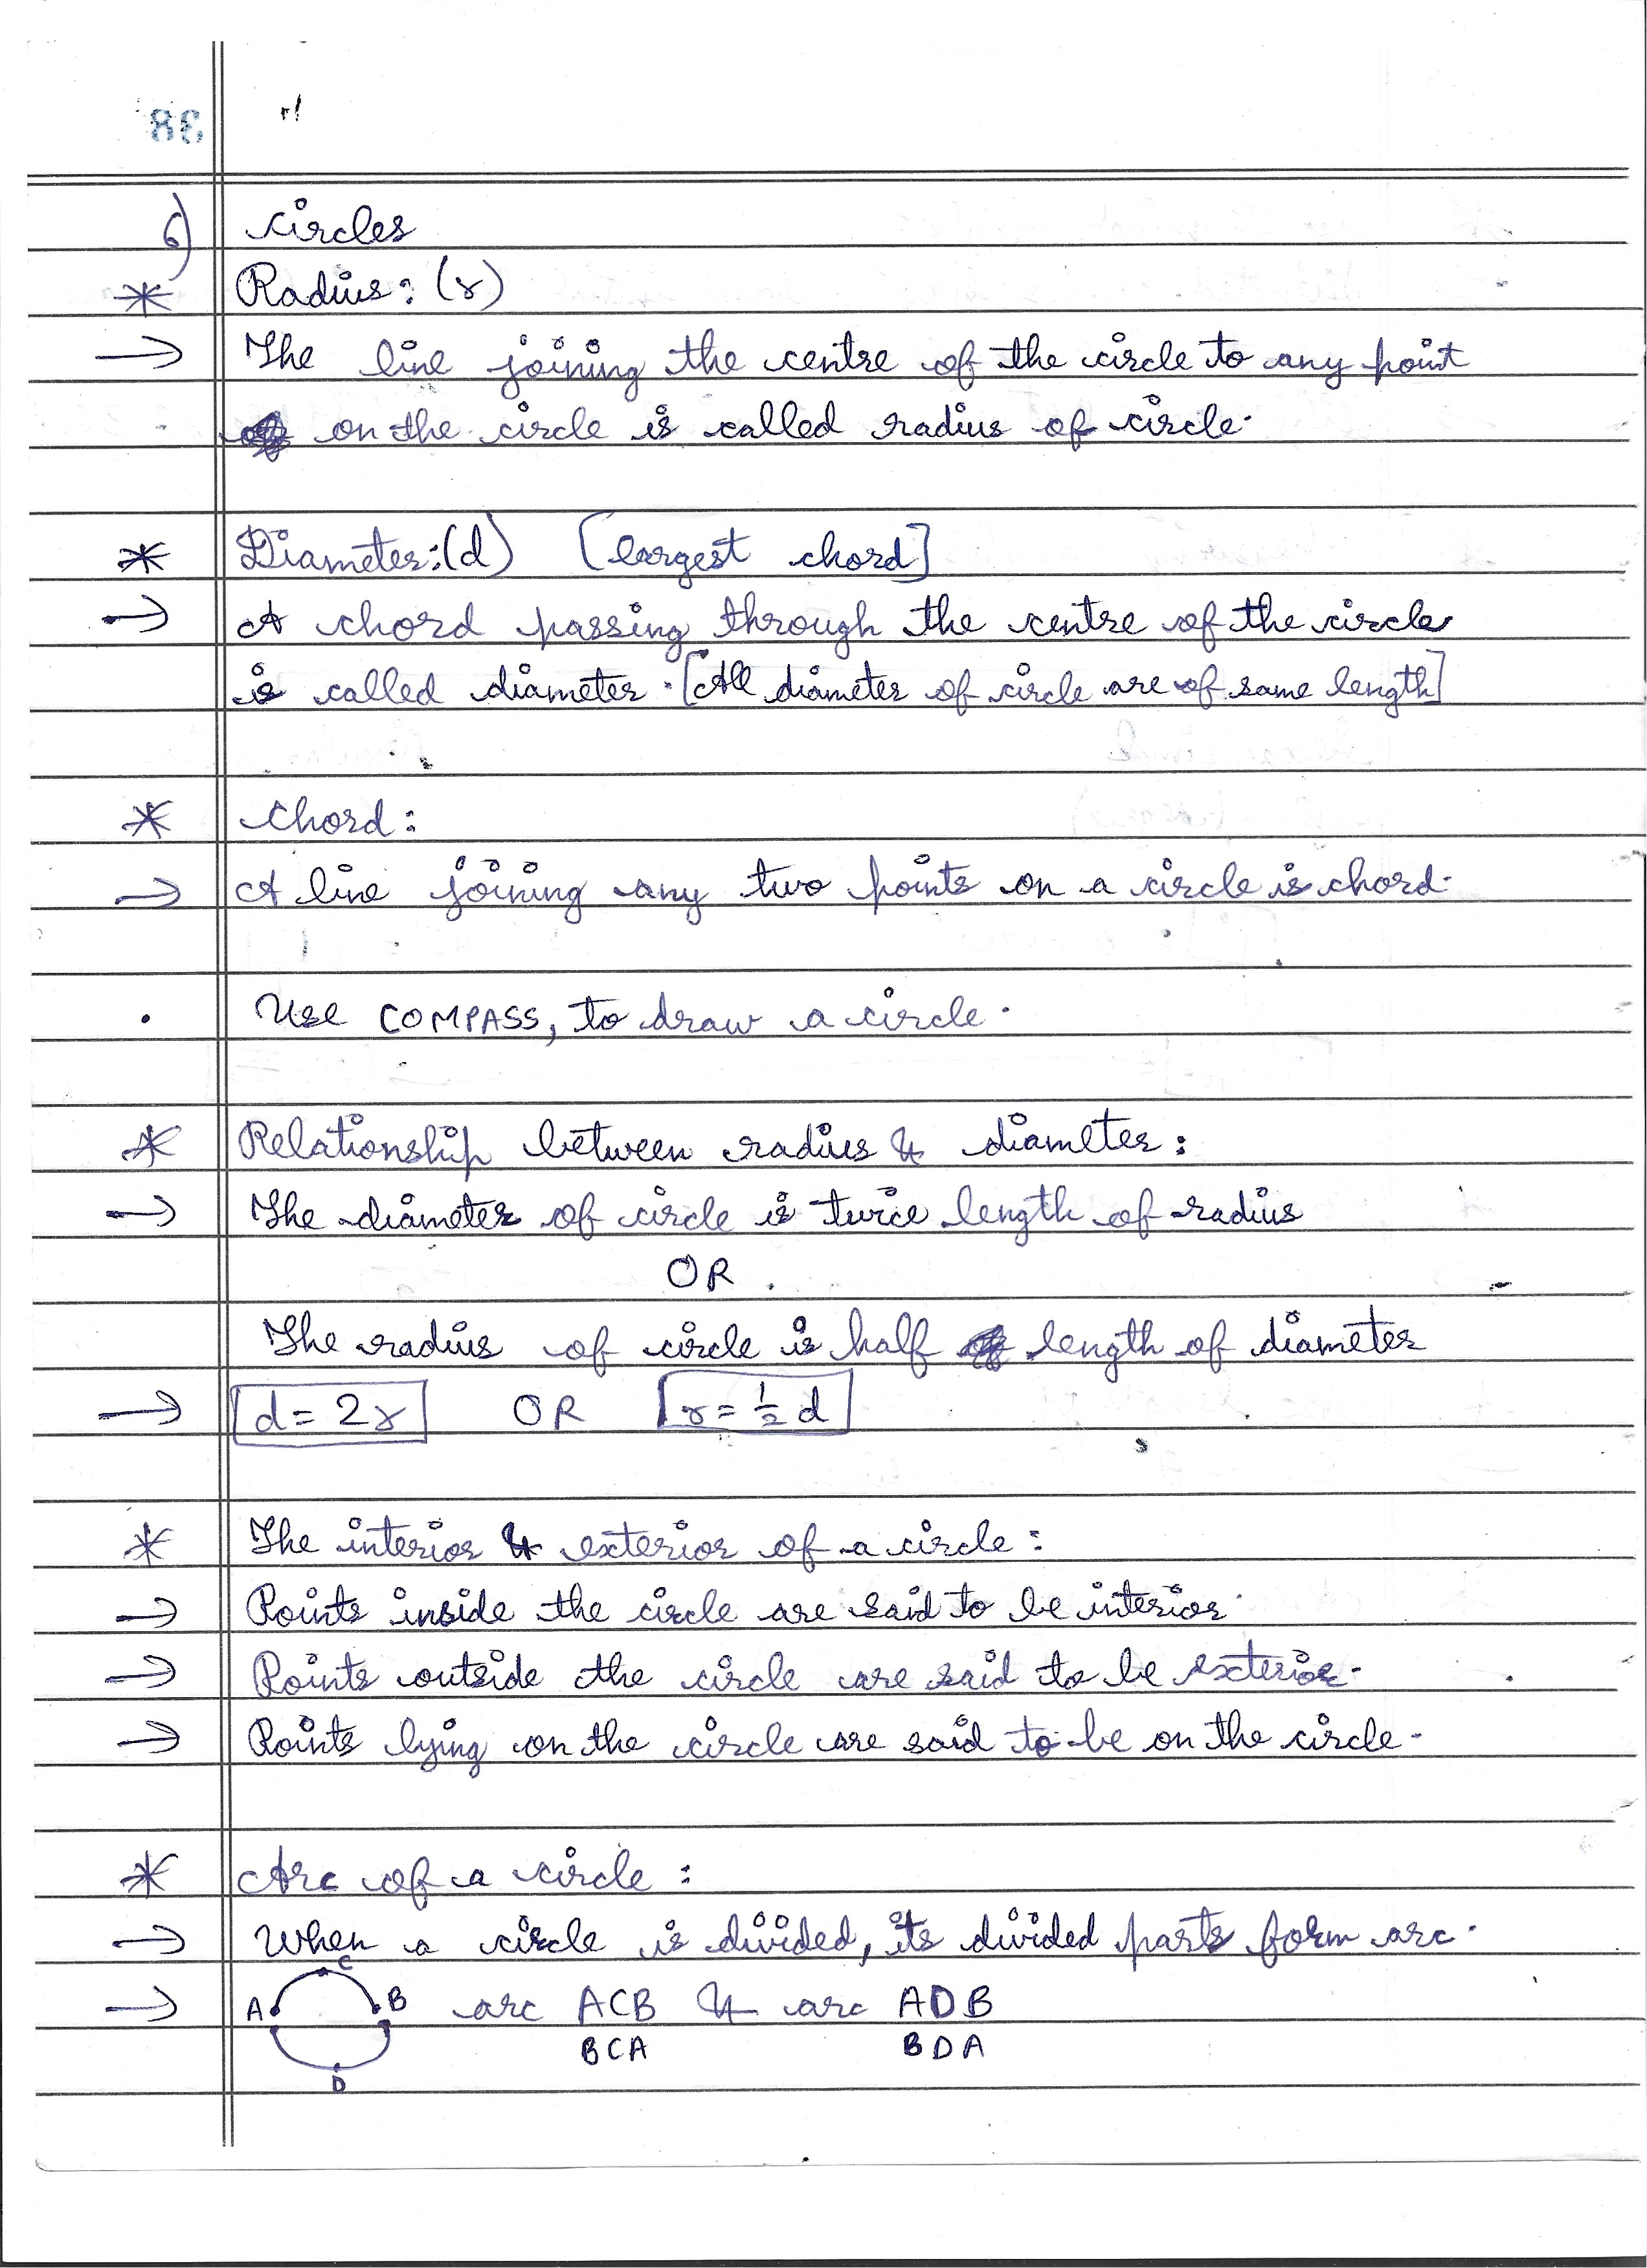 38
6) Circles
* Radius: (r)
→ The line joining the centre of the circle to any point
on the circle is called radius of circle.
* Diameter: (d) [largest chord]
→ A chord passing through the centre of the circle
is called diameter. [All diameter of circle are of same length]
* Chord:
→ A line joining any two points on a circle is chord.
. Use COMPASS, to draw a circle.
* Relationship between radius & diameter:
→ The diameter of circle is twice length of radius
OR
The radius of circle is half length of diameter
→ d = 2r OR r = 1/2 d
* The interior & exterior of a circle:
→ Points inside the circle are said to be interior.
→ Points outside the circle are said to be exterior.
→ Points lying on the circle are said to be on the circle.
* Arc of a circle:
→ When a circle is divided, its divided parts form arc.
C
→ A B arc ACB & arc ADB
BCA BDA
D